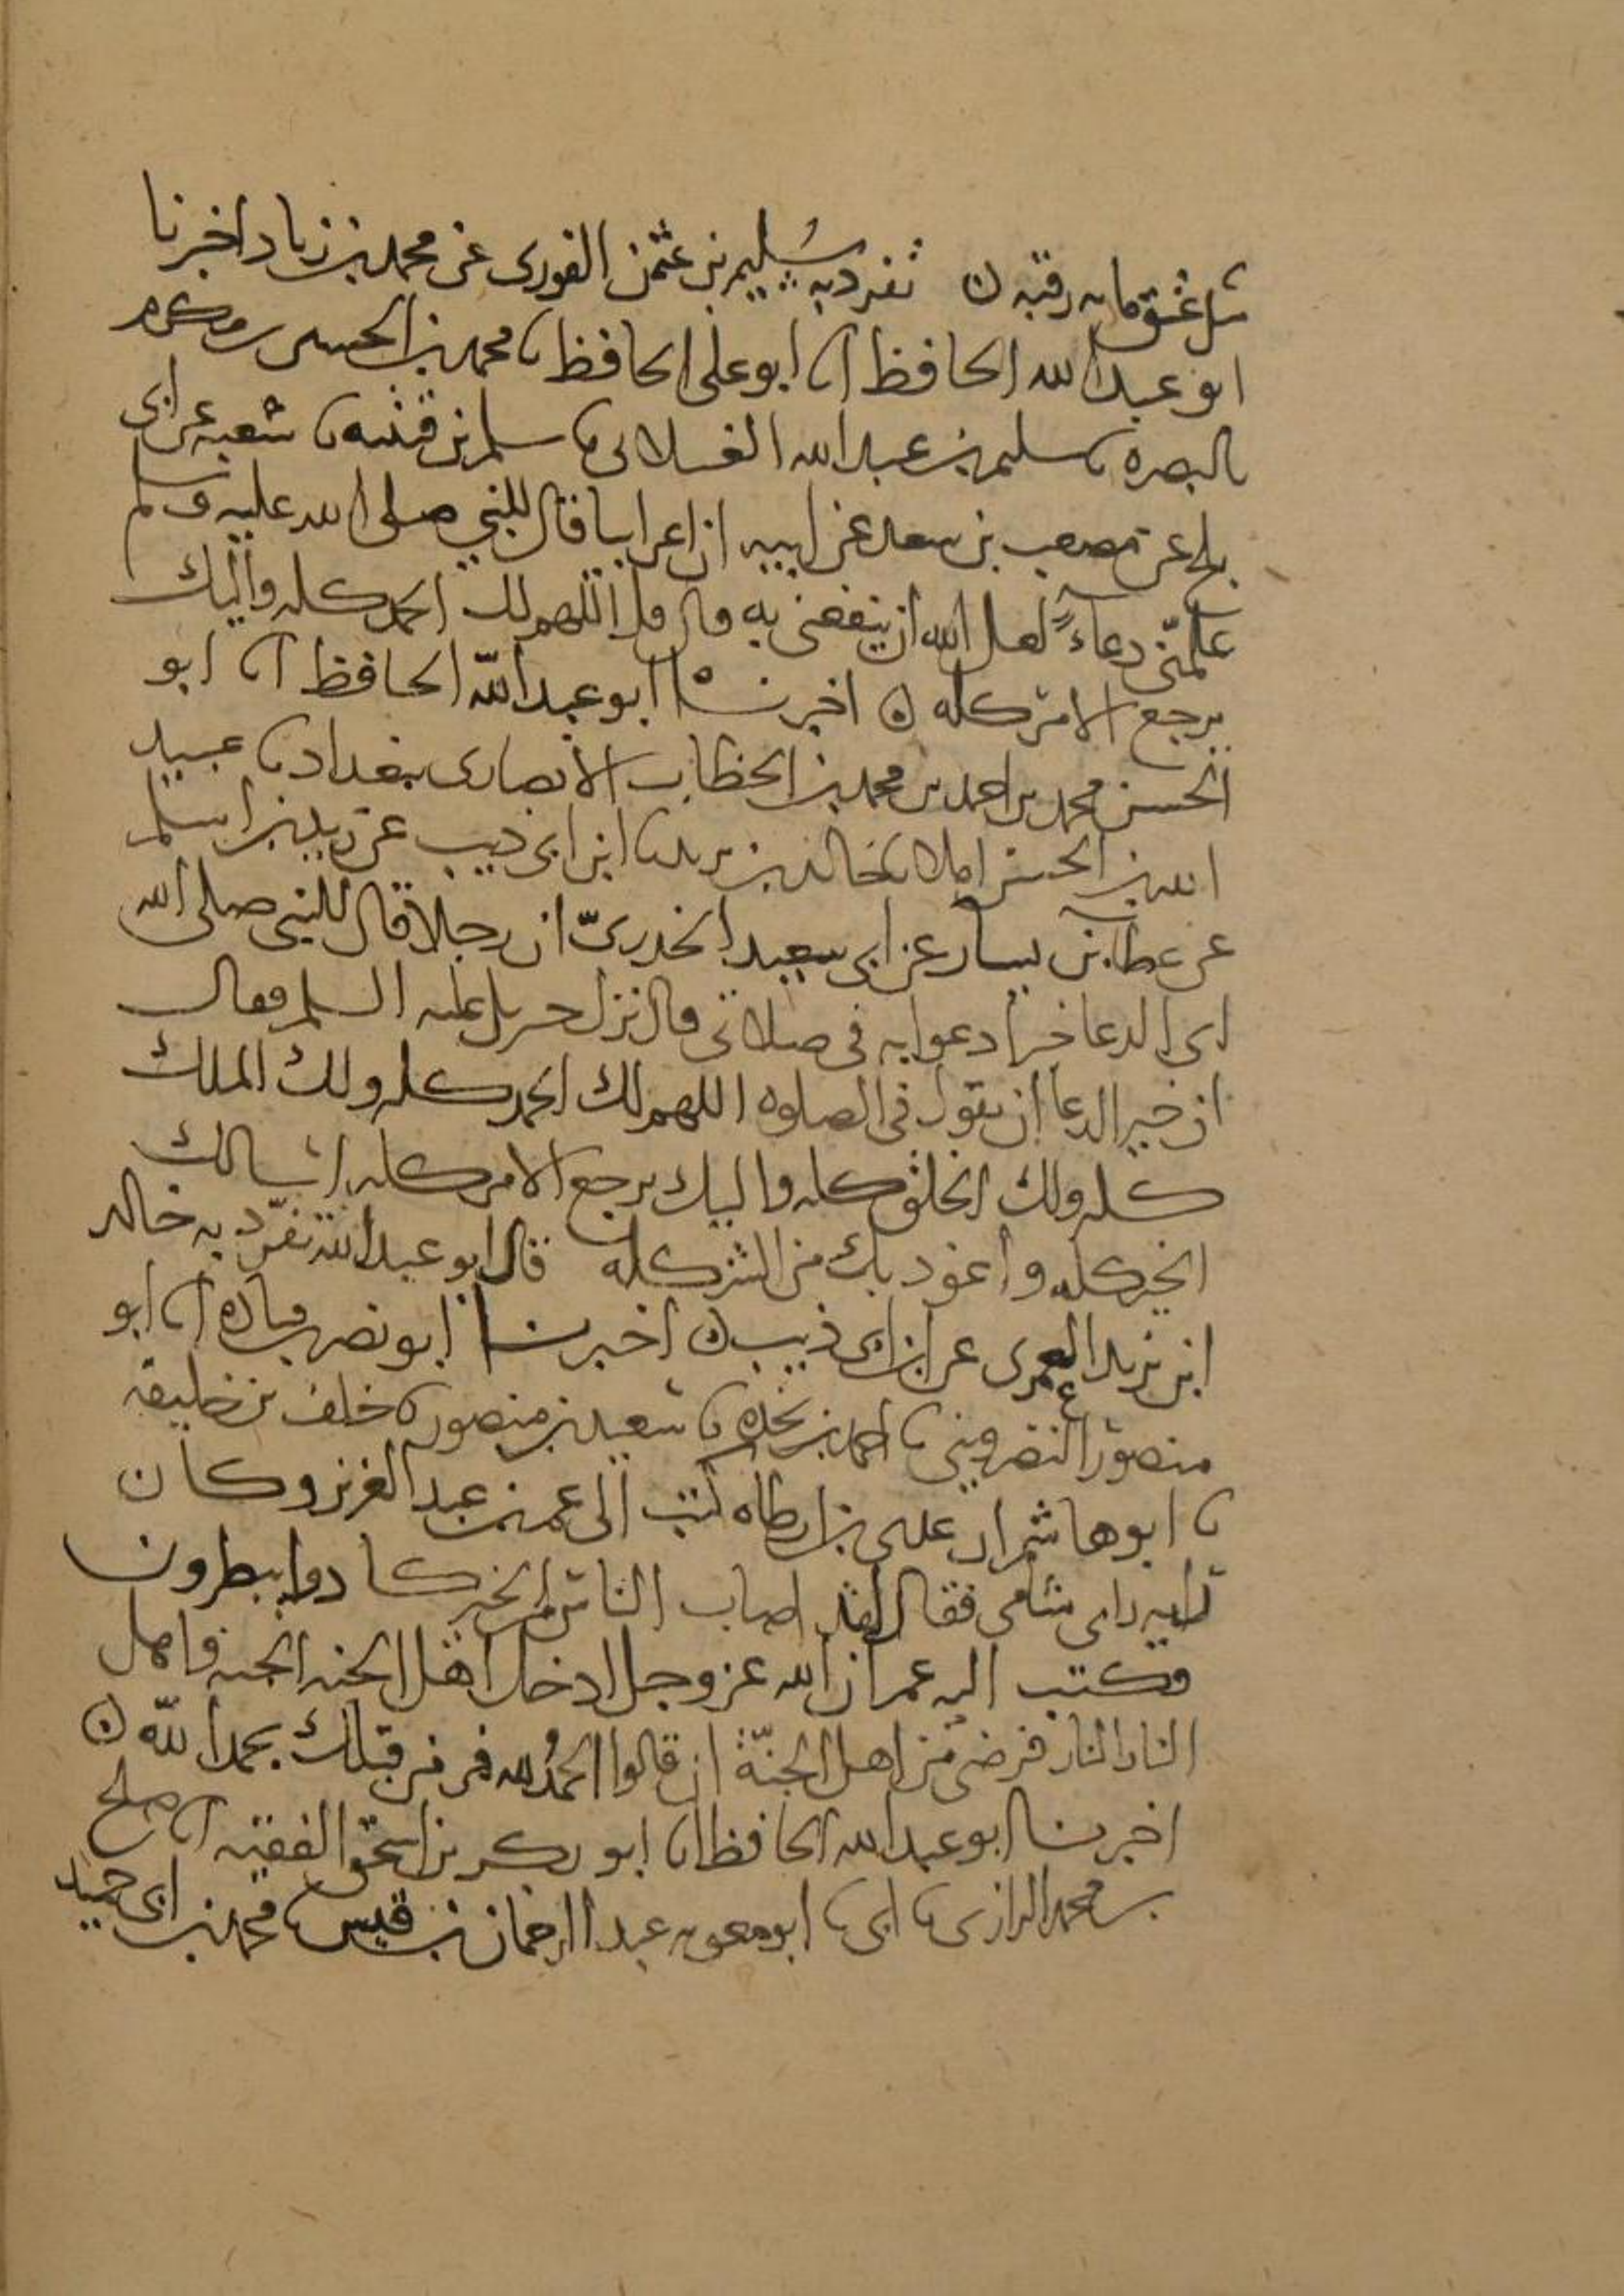 مثل عتق مايه رقبه ن تفرد به سُليم بن عثمن الفوري عن محمد بن زياد اخبرنا
ابو عبد الله الحافظ انا ابو علي الحافظ نا محمد بن الحسين بن مكرم
بالبصره نا سليم بن عبد الله الغيلاني نا سلم بن قتيبه نا شعبه عن ابي
بلج عن مصعب بن سعد عن ابيه ان اعرابيا قال للنبي صلى الله عليه وسلم
علمّني دعاءً لعل الله ان ينفعني به قال قل اللهم لك الحمد كله واليك
يرجع الامر كله ن اخبرنا ابو عبد اللّه الحافظ انا ابو
الحسن محمد بن احمد بن محمد بن الخطاب الانصاري ببغداد نا عبيد
الله بن الحسن املا نا خالد بن يزيد نا ابن ابي ذيب عن زيد بن اسلم
عن عطا بن يسار عن ابي سعيد الخدريّ ان رجلا قال للنبي صلى الله
اي الدعا خير ادعوا به في صلاتي قال نزل جبريل عليه السلم فقال
ان خير الدعا ان تقول في الصلوه اللهم لك الحمد كله ولك الملك
كله ولك الخلق كله واليك يرجع الامر كله اسالك
الخير كله واعوذ بك من الشر كله قال ابو عبد الله تفرّد به خالد
ابن يزيد العمري عن ابن ابي ذيب ن اخبرنا ابو نصر بن قتاده انا ابو
منصور النضرويني نا احمد بن نجده نا سعيد بن منصور نا خلف بن خليفه
نا ابو هاشم ان عدي بن ارطاه كتب الى عمر بن عبد العزيز وكان
رايه راي شامي فقال لقد اصاب الناس من الخير كادوا يبطرون
فكتب اليه عمر ان الله عز وجل ادخل اهل الجنه الجنه واهل
النار النار فرضي من اهل الجنّة ان قالوا الحمدُ لله فمر من قبلك بحمد اللّه ن
اخبرنا ابو عبد الله الحافظ انا ابو بكر بن اسحق الفقيه انا صلح
بن محمد الرازي نا ابي نا ابو معويه عبد الرحمان بن قيس نا محمد بن ابي حميد